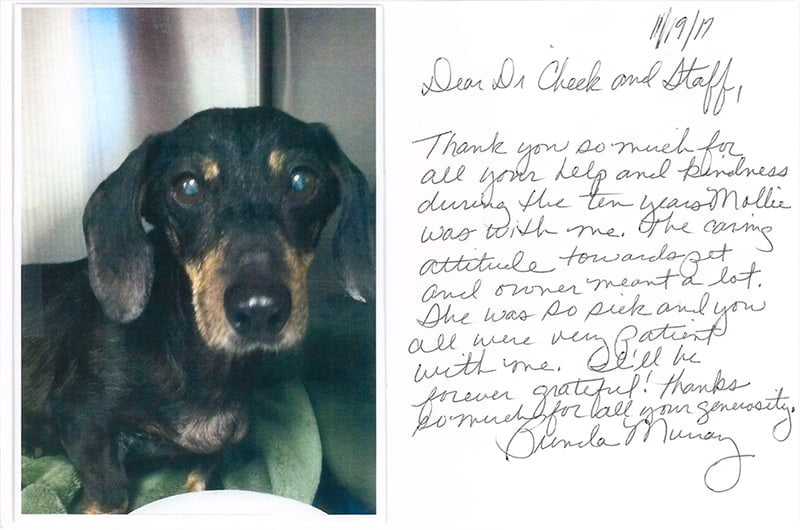 11/19/17
Dear Dr Cheek and Staff,
Thank you so much for
all your help and kindness
during the ten years Mollie
was with me. The caring
attitude towards pet
and owner meant a lot.
She was so sick and you
all were very patient
with me. I'll be
forever grateful! Thanks
so much for all your generosity.
Murray